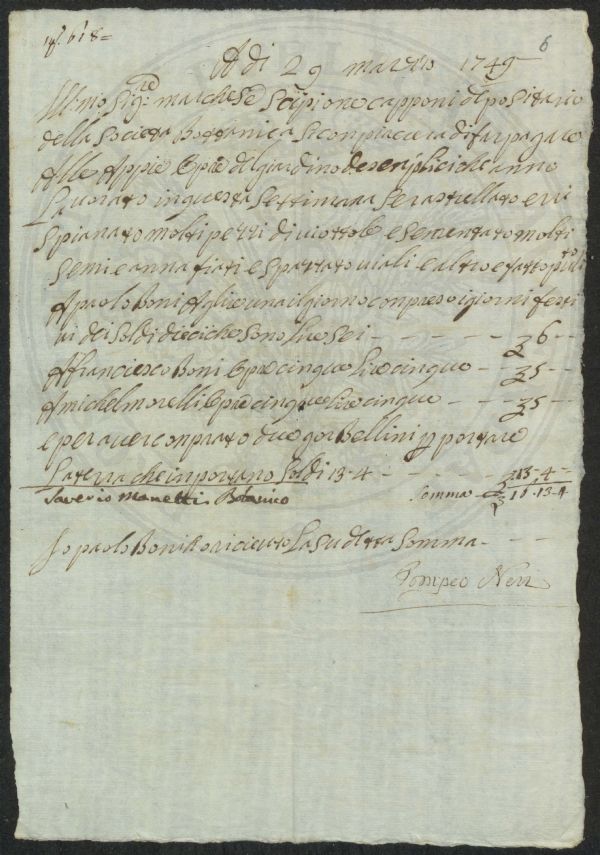 6
A di 29 marzo 1749
Ill:mo Sig:re marchese Scipione capponi depositario
della Societa Bottanica Si conpiacera di far pagare
Alle Appie Opre del giardino de senplici che anno
Lavorato in questa Settimana Se rastrellato e ri
spianato molti pezzi di viottole e sementato molti
semi e annafiati e spazzato viali e altro e fatto
A paolo Boni A lire una il giorno conpreso i giorni festi
vi dei Soldi dieci che sono lire Sei - - - - - 6 - -
A francesco Boni Opre cinque Lire cinque - - - 5 - -
A michel morelli Opre cinque Lire cinque - - - 5 - -
e per aver conprato due gorbellini p portare
La terra che inportano Soldi 13-4 - - - - 13-4-
Saverio Manetti Botanico Somma - 16.13-4
Io paolo Boni o riceuto La Sudetta Somma - - -
Pompeo Neri